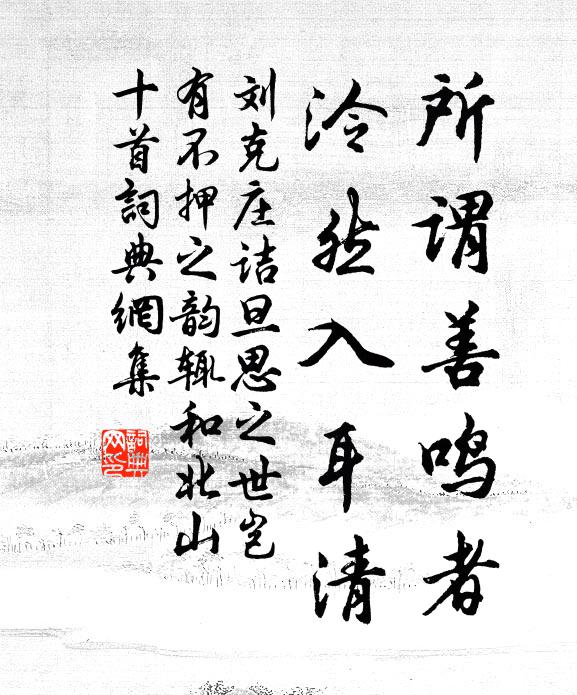 所谓善鸣者
泠然入耳清
刘克庄诘旦思之世岂
有不押之韵辄和北山
十首詞典網集
詞典网印